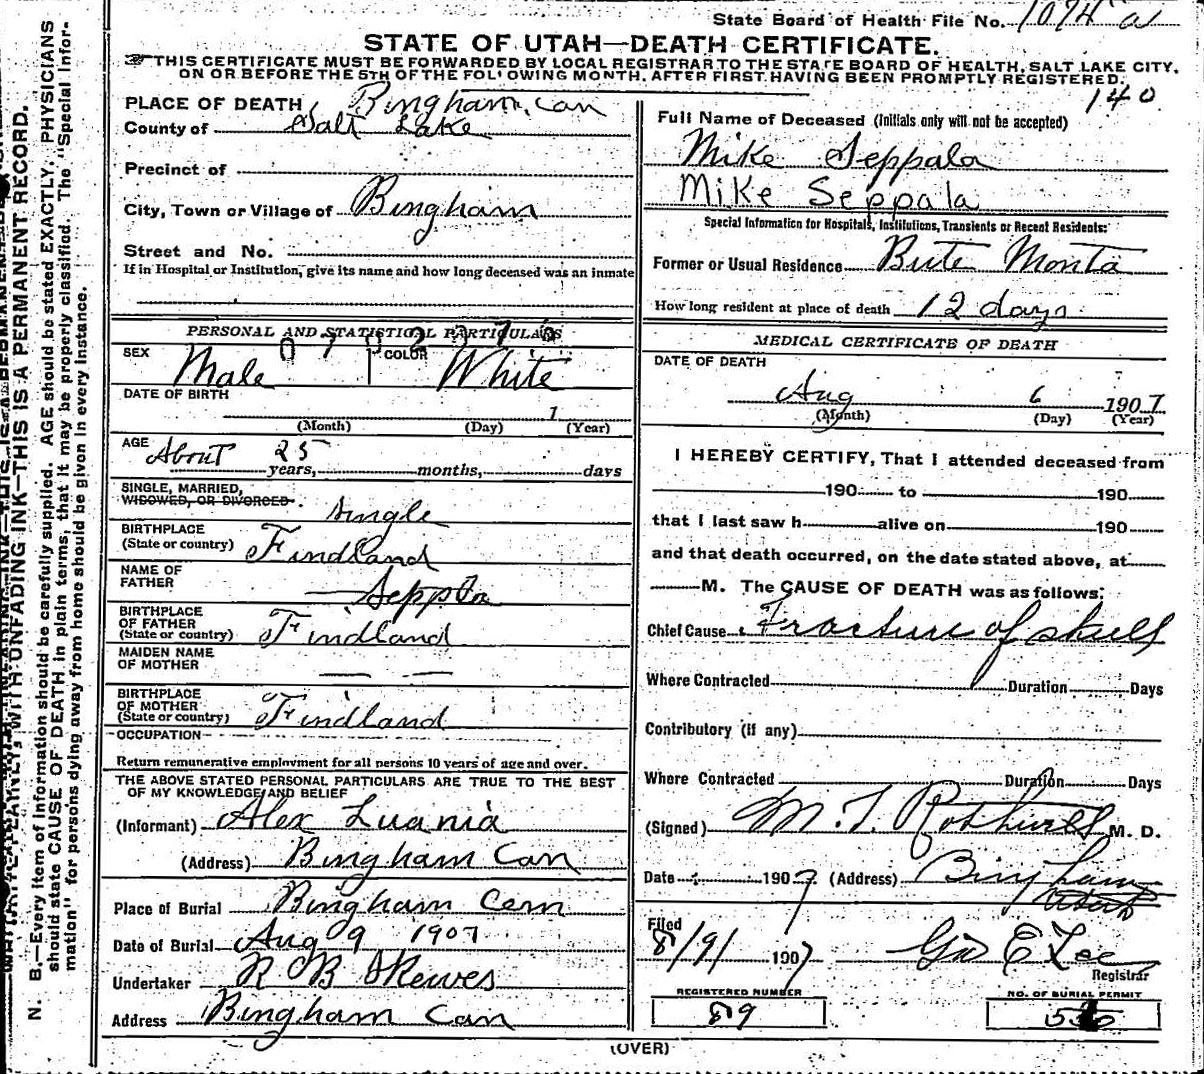 State Board of Health File No. 1074 a
STATE OF UTAH—DEATH CERTIFICATE.
THIS CERTIFICATE MUST BE FORWARDED BY LOCAL REGISTRAR TO THE STATE BOARD OF HEALTH, SALT LAKE CITY,
ON OR BEFORE THE 5TH OF THE FOLLOWING MONTH, AFTER FIRST HAVING BEEN PROMPTLY REGISTERED.
140
PLACE OF DEATH Bingham, Can
County of Salt Lake
Precinct of
City, Town or Village of Bingham
Street and No.
If in Hospital or Institution, give its name and how long deceased was an inmate
PERSONAL AND STATISTICAL PARTICULARS
SEX Male COLOR White
DATE OF BIRTH
1
(Month) (Day) (Year)
AGE About 25 years, months, days
SINGLE, MARRIED,
WIDOWED, OR DIVORCED. Single
BIRTHPLACE
(State or country) Findland
NAME OF
FATHER — Seppla
BIRTHPLACE
OF FATHER
(State or country) Findland
MAIDEN NAME
OF MOTHER — —
BIRTHPLACE
OF MOTHER
(State or country) Findland
OCCUPATION
Return remunerative employment for all persons 10 years of age and over.
THE ABOVE STATED PERSONAL PARTICULARS ARE TRUE TO THE BEST
OF MY KNOWLEDGE AND BELIEF
(Informant) Alex Luania
(Address) Bingham Can
Place of Burial Bingham Cem
Date of Burial Aug 9 1907
Undertaker R B Skewes
Address Bingham Can
Full Name of Deceased (Initials only will not be accepted)
Mike Seppala
Mike Seppala
Special Information for Hospitals, Institutions, Transients or Recent Residents:
Former or Usual Residence Bute Monta
How long resident at place of death 12 days
MEDICAL CERTIFICATE OF DEATH
DATE OF DEATH
Aug 6 1907
(Month) (Day) (Year)
I HEREBY CERTIFY, That I attended deceased from
190 to 190
that I last saw h alive on 190
and that death occurred, on the date stated above, at
M. The CAUSE OF DEATH was as follows:
Chief Cause Fracture of skull
Where Contracted Duration Days
Contributory (if any)
Where Contracted Duration Days
(Signed) M. F. Rothwell M. D.
Date 1907 (Address) Bingham
Utah
Filed
8/9/ 1907 Geo E Lee
Registrar
REGISTERED NUMBER
89
NO. OF BURIAL PERMIT
(OVER)
N. B.—Every item of information should be carefully supplied. AGE should be stated EXACTLY. PHYSICIANS
should state CAUSE OF DEATH in plain terms, that it may be properly classified. The "Special Infor-
mation" for persons dying away from home should be given in every instance.
WITH UNFADING INK—THIS IS A PERMANENT RECORD.